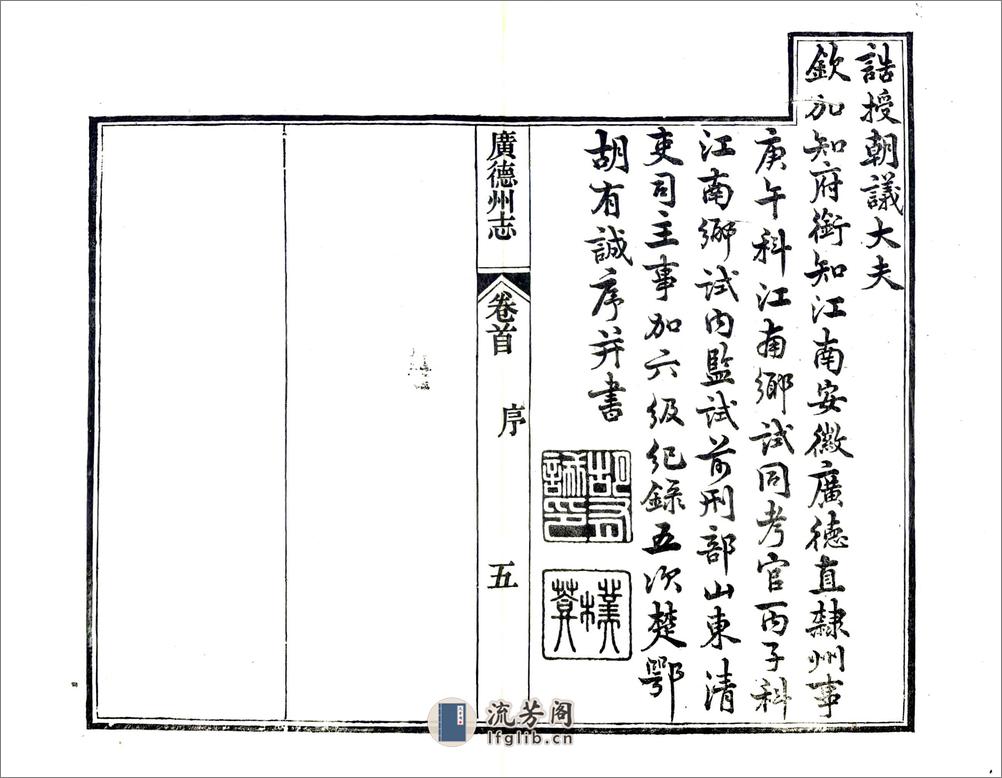 誥授朝議大夫
欽加知府銜知江南安徽廣德直隸州事
庚午科江南鄉試同考官丙子科
江南鄉試內監試前刑部山東清
吏司主事加六級紀錄五次楚鄂
胡有誠序并書
胡有
誠印
樸
廣德州志
卷首
序
五
流芳阁
lfglib.cn